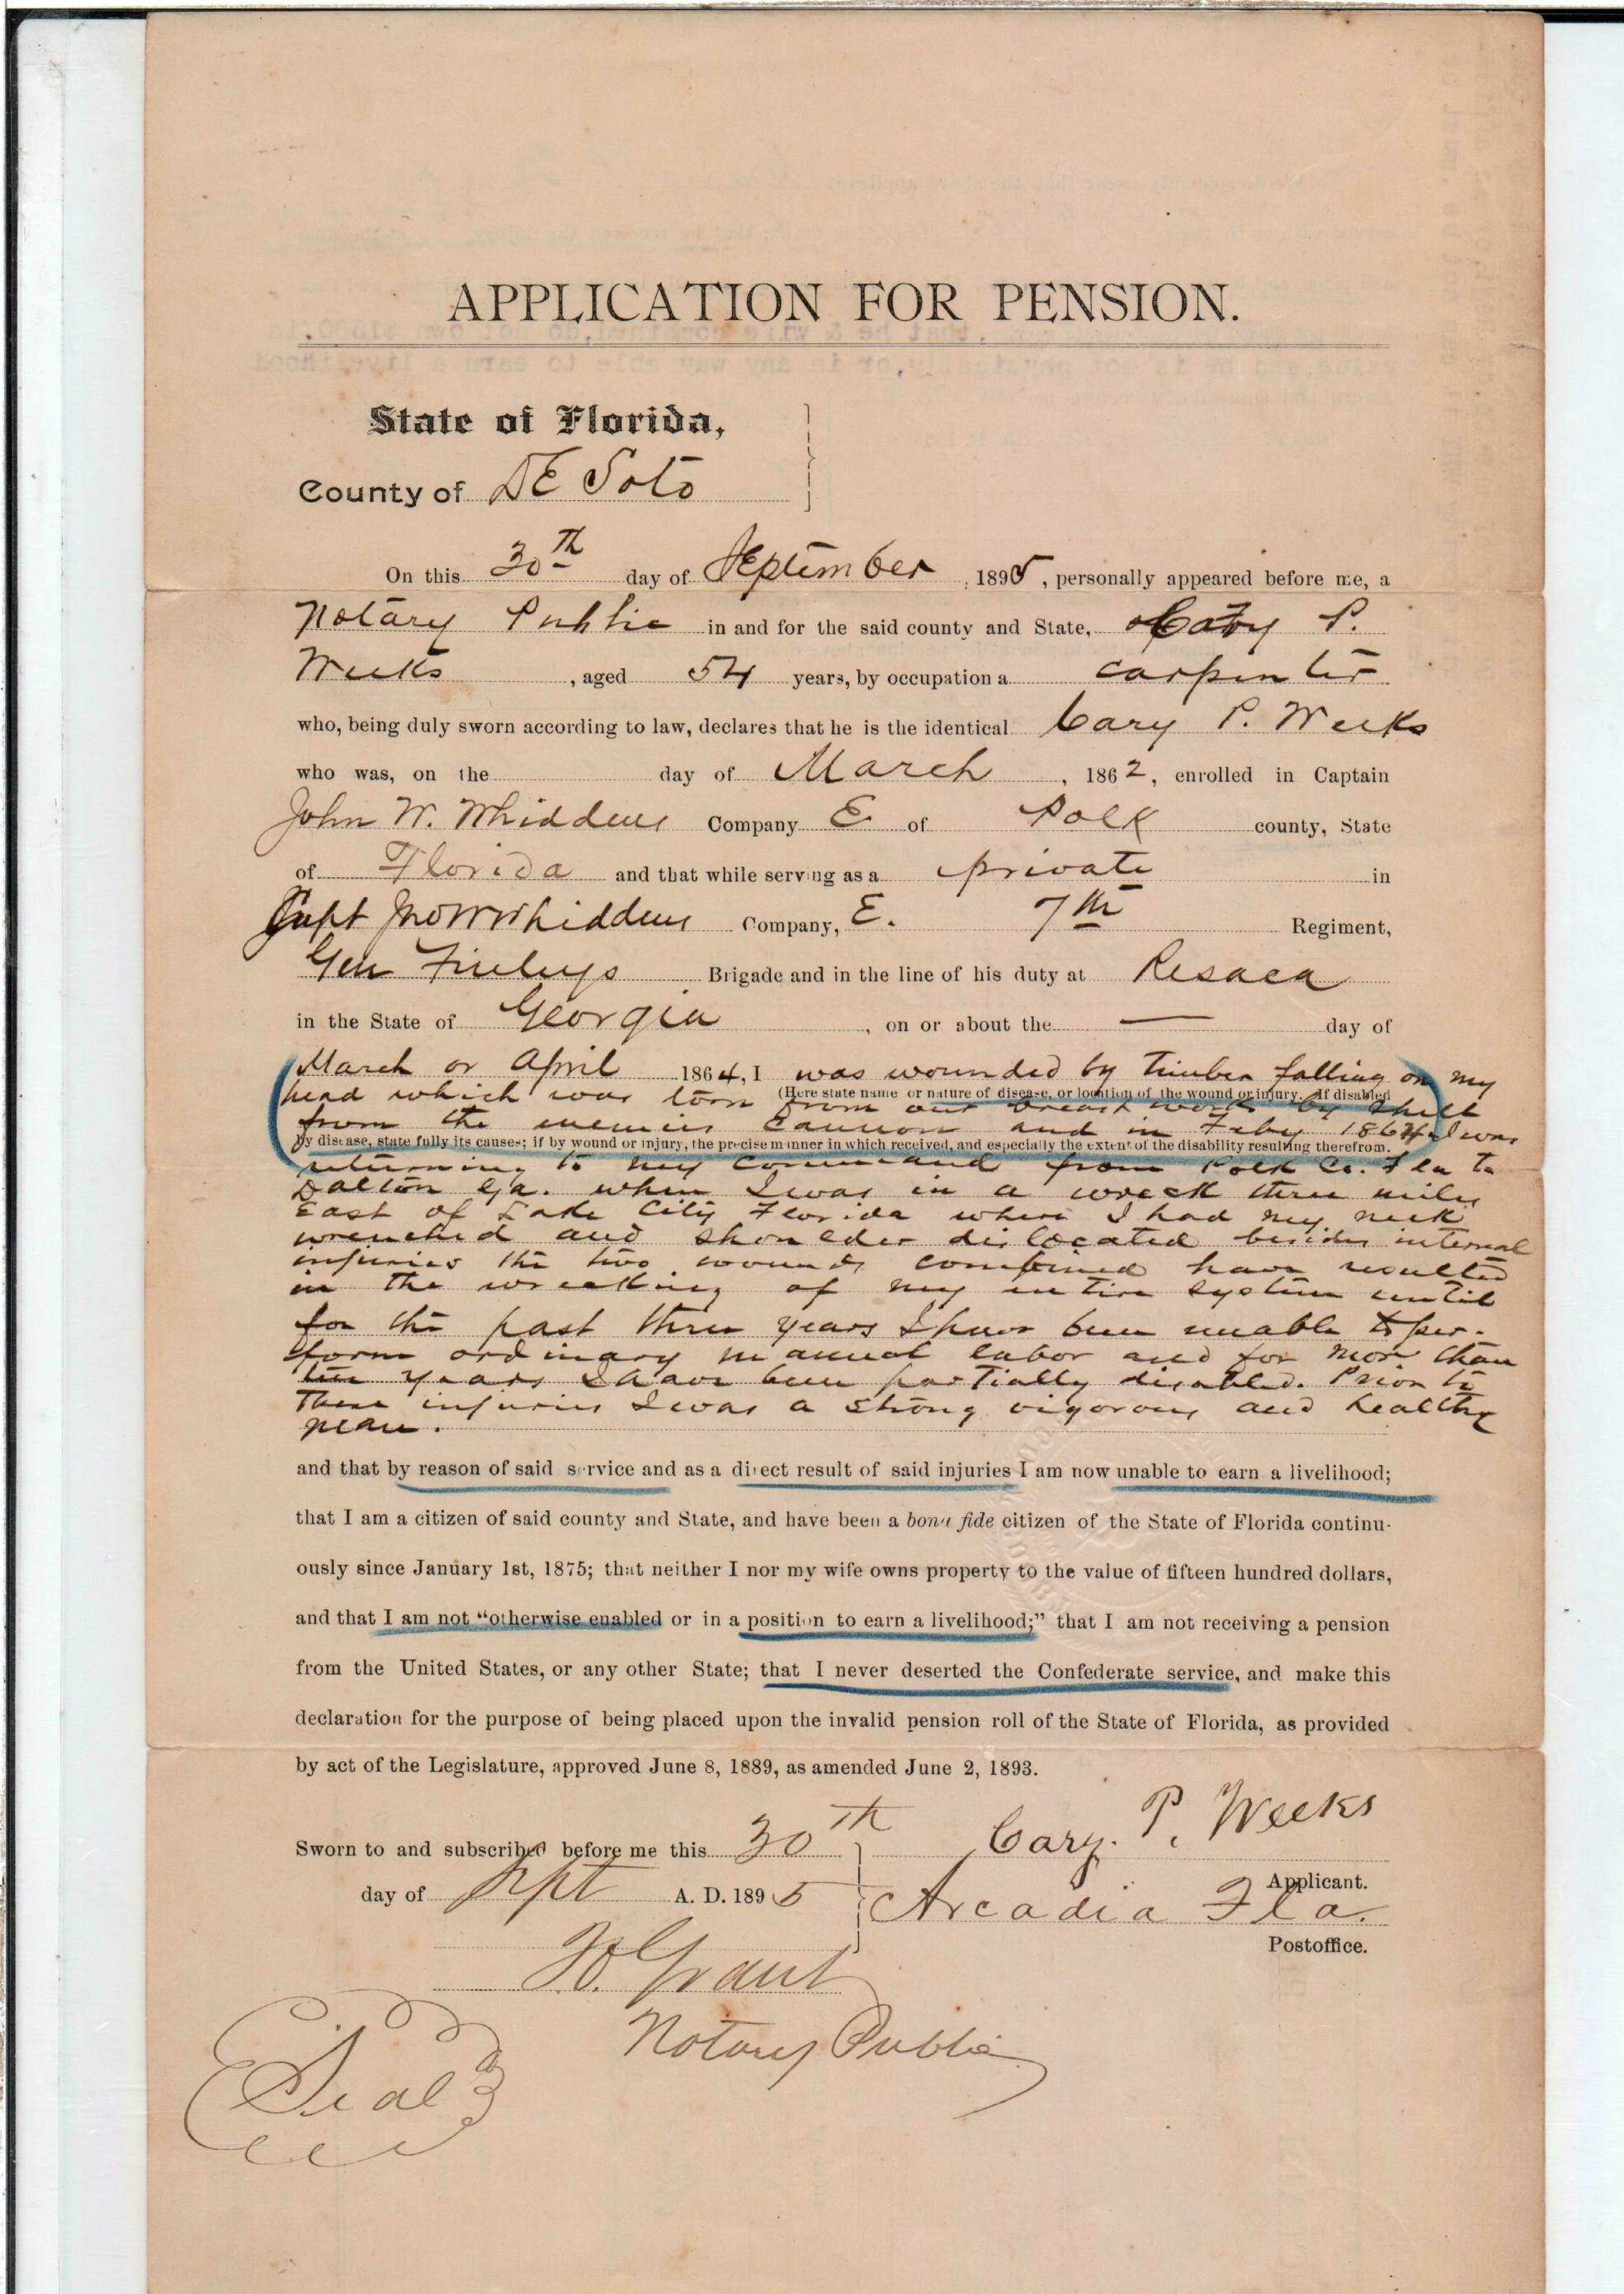 APPLICATION FOR PENSION.
State of Florida,
County of DE Soto
On this 30th day of September, 1895, personally appeared before me, a
Notary Public in and for the said county and State, Cary P.
Weeks, aged 54 years, by occupation a carpenter
who, being duly sworn according to law, declares that he is the identical Cary P. Weeks
who was, on the day of March, 1862, enrolled in Captain
John W. Whiddens Company E. of Polk county, State
of Florida and that while serving as a private in
Capt Jno W Whiddens Company, E. 7th Regiment,
Gen Finleys Brigade and in the line of his duty at Resaca
in the State of Georgia, on or about the — day of
March or April 1864, I was wounded by timber falling on my
head which was torn from our breast works by shell
(Here state name or nature of disease, or location of the wound or injury. If disabled
from the enemies cannon and in Feby 1864 I was
by disease, state fully its causes; if by wound or injury, the precise manner in which received, and especially the extent of the disability resulting therefrom.
returning to my command from Polk Co. Fla to
Dalton Ga. when I was in a wreck three miles
East of Lake City Florida where I had my neck
wrenched and shoulder dislocated besides internal
injuries the two wounds combined have resulted
in the wrecking of my entire system until
for the past three years I have been unable to per-
form ordinary manual labor and for more than
ten years I have been partially disabled. Prior to
These injuries I was a strong vigorous and healthy
man.
and that by reason of said service and as a direct result of said injuries I am now unable to earn a livelihood;
that I am a citizen of said county and State, and have been a bona fide citizen of the State of Florida continu-
ously since January 1st, 1875; that neither I nor my wife owns property to the value of fifteen hundred dollars,
and that I am not "otherwise enabled or in a position to earn a livelihood;" that I am not receiving a pension
from the United States, or any other State; that I never deserted the Confederate service, and make this
declaration for the purpose of being placed upon the invalid pension roll of the State of Florida, as provided
by act of the Legislature, approved June 8, 1889, as amended June 2, 1893.
Sworn to and subscribed before me this 30th Cary. P. Weeks
Applicant.
day of Sept A. D. 1895 Arcadia Fla.
Postoffice.
Grant
Notary Public
Seal